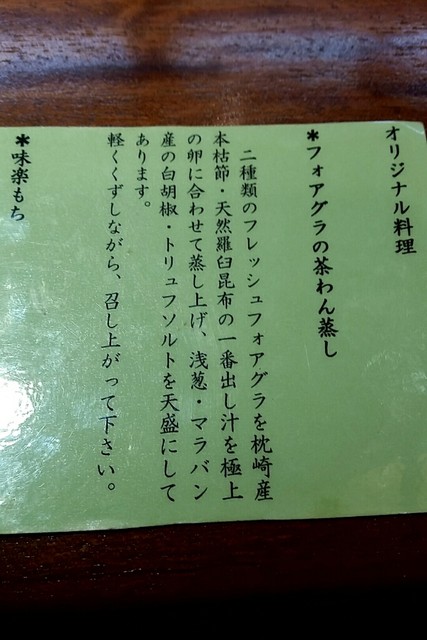 オリジナル料理
＊フォアグラの茶わん蒸し
二種類のフレッシュフォアグラを枕崎産
本枯節・天然羅臼昆布の一番出し汁を極上
の卵に合わせて蒸し上げ、浅葱・マラバン
産の白胡椒・トリュフソルトを天盛にして
あります。
軽くくずしながら、召し上がって下さい。
＊味楽もち